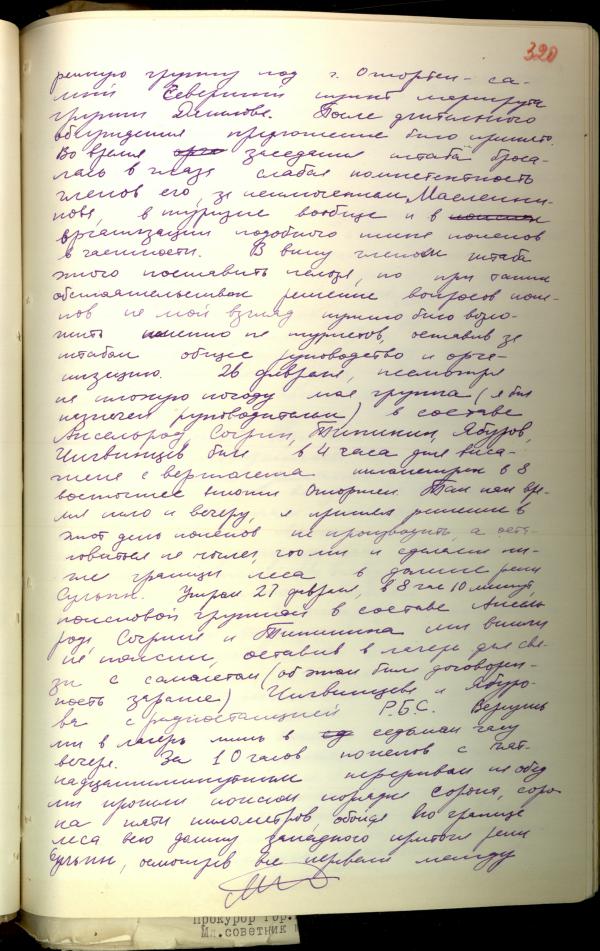 320
решную группу под г. Отортен - са-
мый Северный пункт маршрута
группы Дятлова. После длительного
обсуждения предложение было принято.
Во время заседания штаба броса-
лась в глаза слабая компетентность
членов его, за исключением Масленни-
кова, в туризме вообще и в
организации подобного типа поисков
в частности. В вину членам штаба
этого поставить нельзя, но при таких
обстоятельствах решение вопросов поис-
ков на мой взгляд нужно было возло-
жить именно на туристов, оставив за
штабом общее руководство и орга-
низацию. 26 февраля, несмотря
на плохую погоду моя группа (я был
назначен руководителем) в составе
Аксельрод, Согрин, Типикин, Ябуров,
Чигвинцев были в 4 часа дня выса-
жены с вертолета километрах в 8
восточнее высоты Отортен. Так как вре-
мя шло к вечеру, я принял решение в
этот день поисков не производить, а оста-
новиться на ночлег, что мы и сделали ни-
же границы леса в долине реки
Сульпы. Утром 27 февраля, в 8 час 10 минут,
поисковой группой в составе Аксель-
рода, Согрина и Типикина мы вышли
на поиски, оставив в лагере для свя-
зи с самолетом (об этом была договорен-
ность заранее) Чигвинцева и Ябуро-
ва с радиостанцией Р.Б.С. Вернулись
мы в лагерь лишь в седьмом часу
вечера. За 10 часов поисков с пят-
надцатиминутным перерывом на обед
мы прошли поиском порядка сорока, соро-
ка пяти километров, обойдя по границе
леса всю долину западного притока реки
Сульпы, осмотрев все перевалы между
Прокурор гор.
Мл.советник